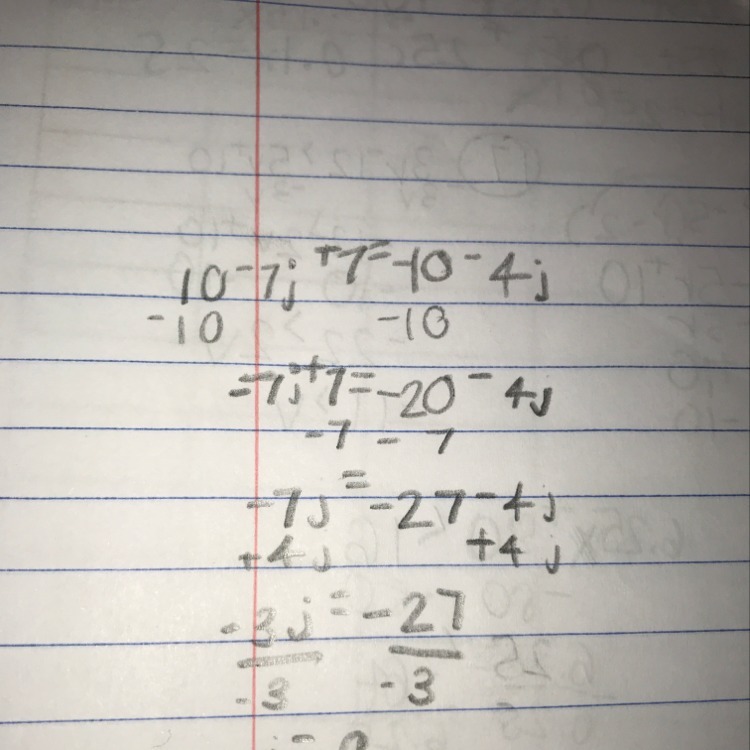 10-7j+7=-10-4j
-10 -10
-7j+7=-20-4j
-7 -7
-7j=-27-4j
+4j +4j
-3j=-27
-3 -3